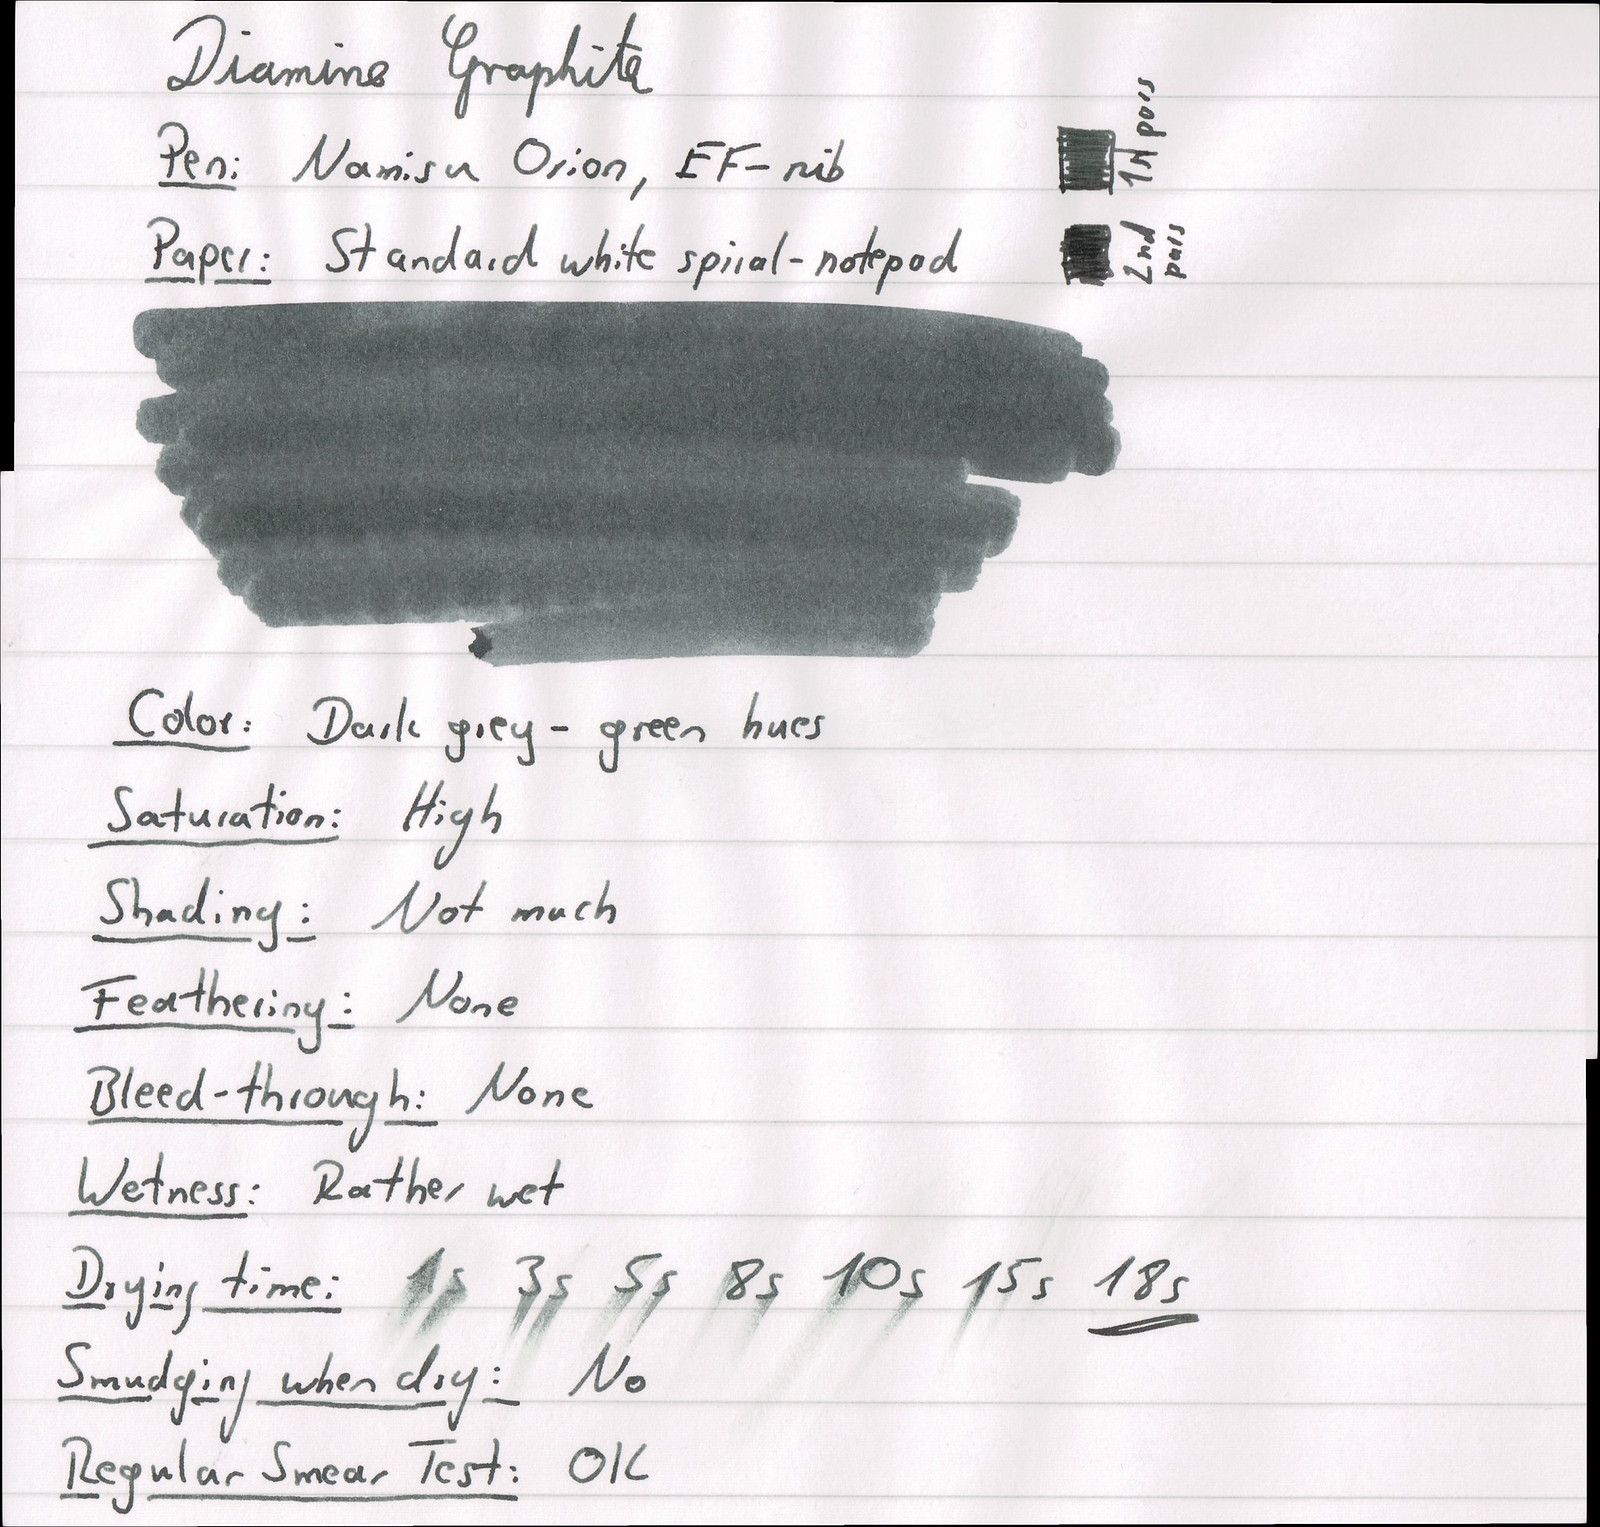 Diamine Graphite
Pen: Namisu Orion, EF-nib
1st pass
Paper: Standard white spiral-notepad
2nd pass
Color: Dark grey - green hues
Saturation: High
Shading: Not much
Feathering: None
Bleed-through: None
Wetness: Rather wet
Drying time: 1s 3s 5s 8s 10s 15s 18s
Smudging when dry: No
Regular Smear Test: OK